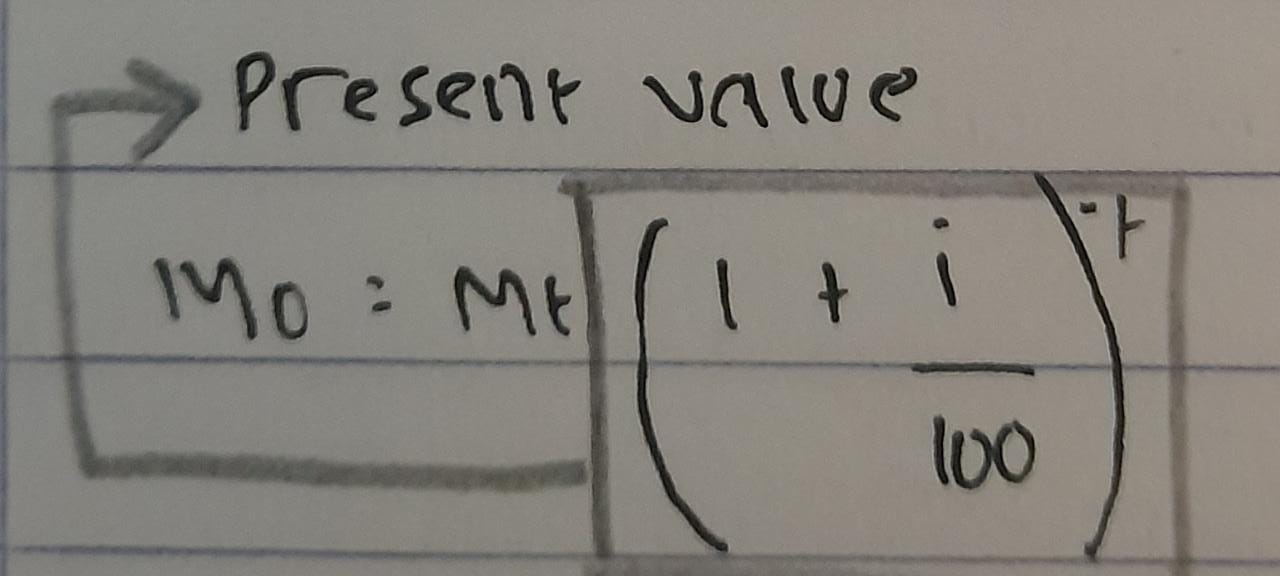 Present value
M₀ = Mt (1 + i/100)⁻ᵗ